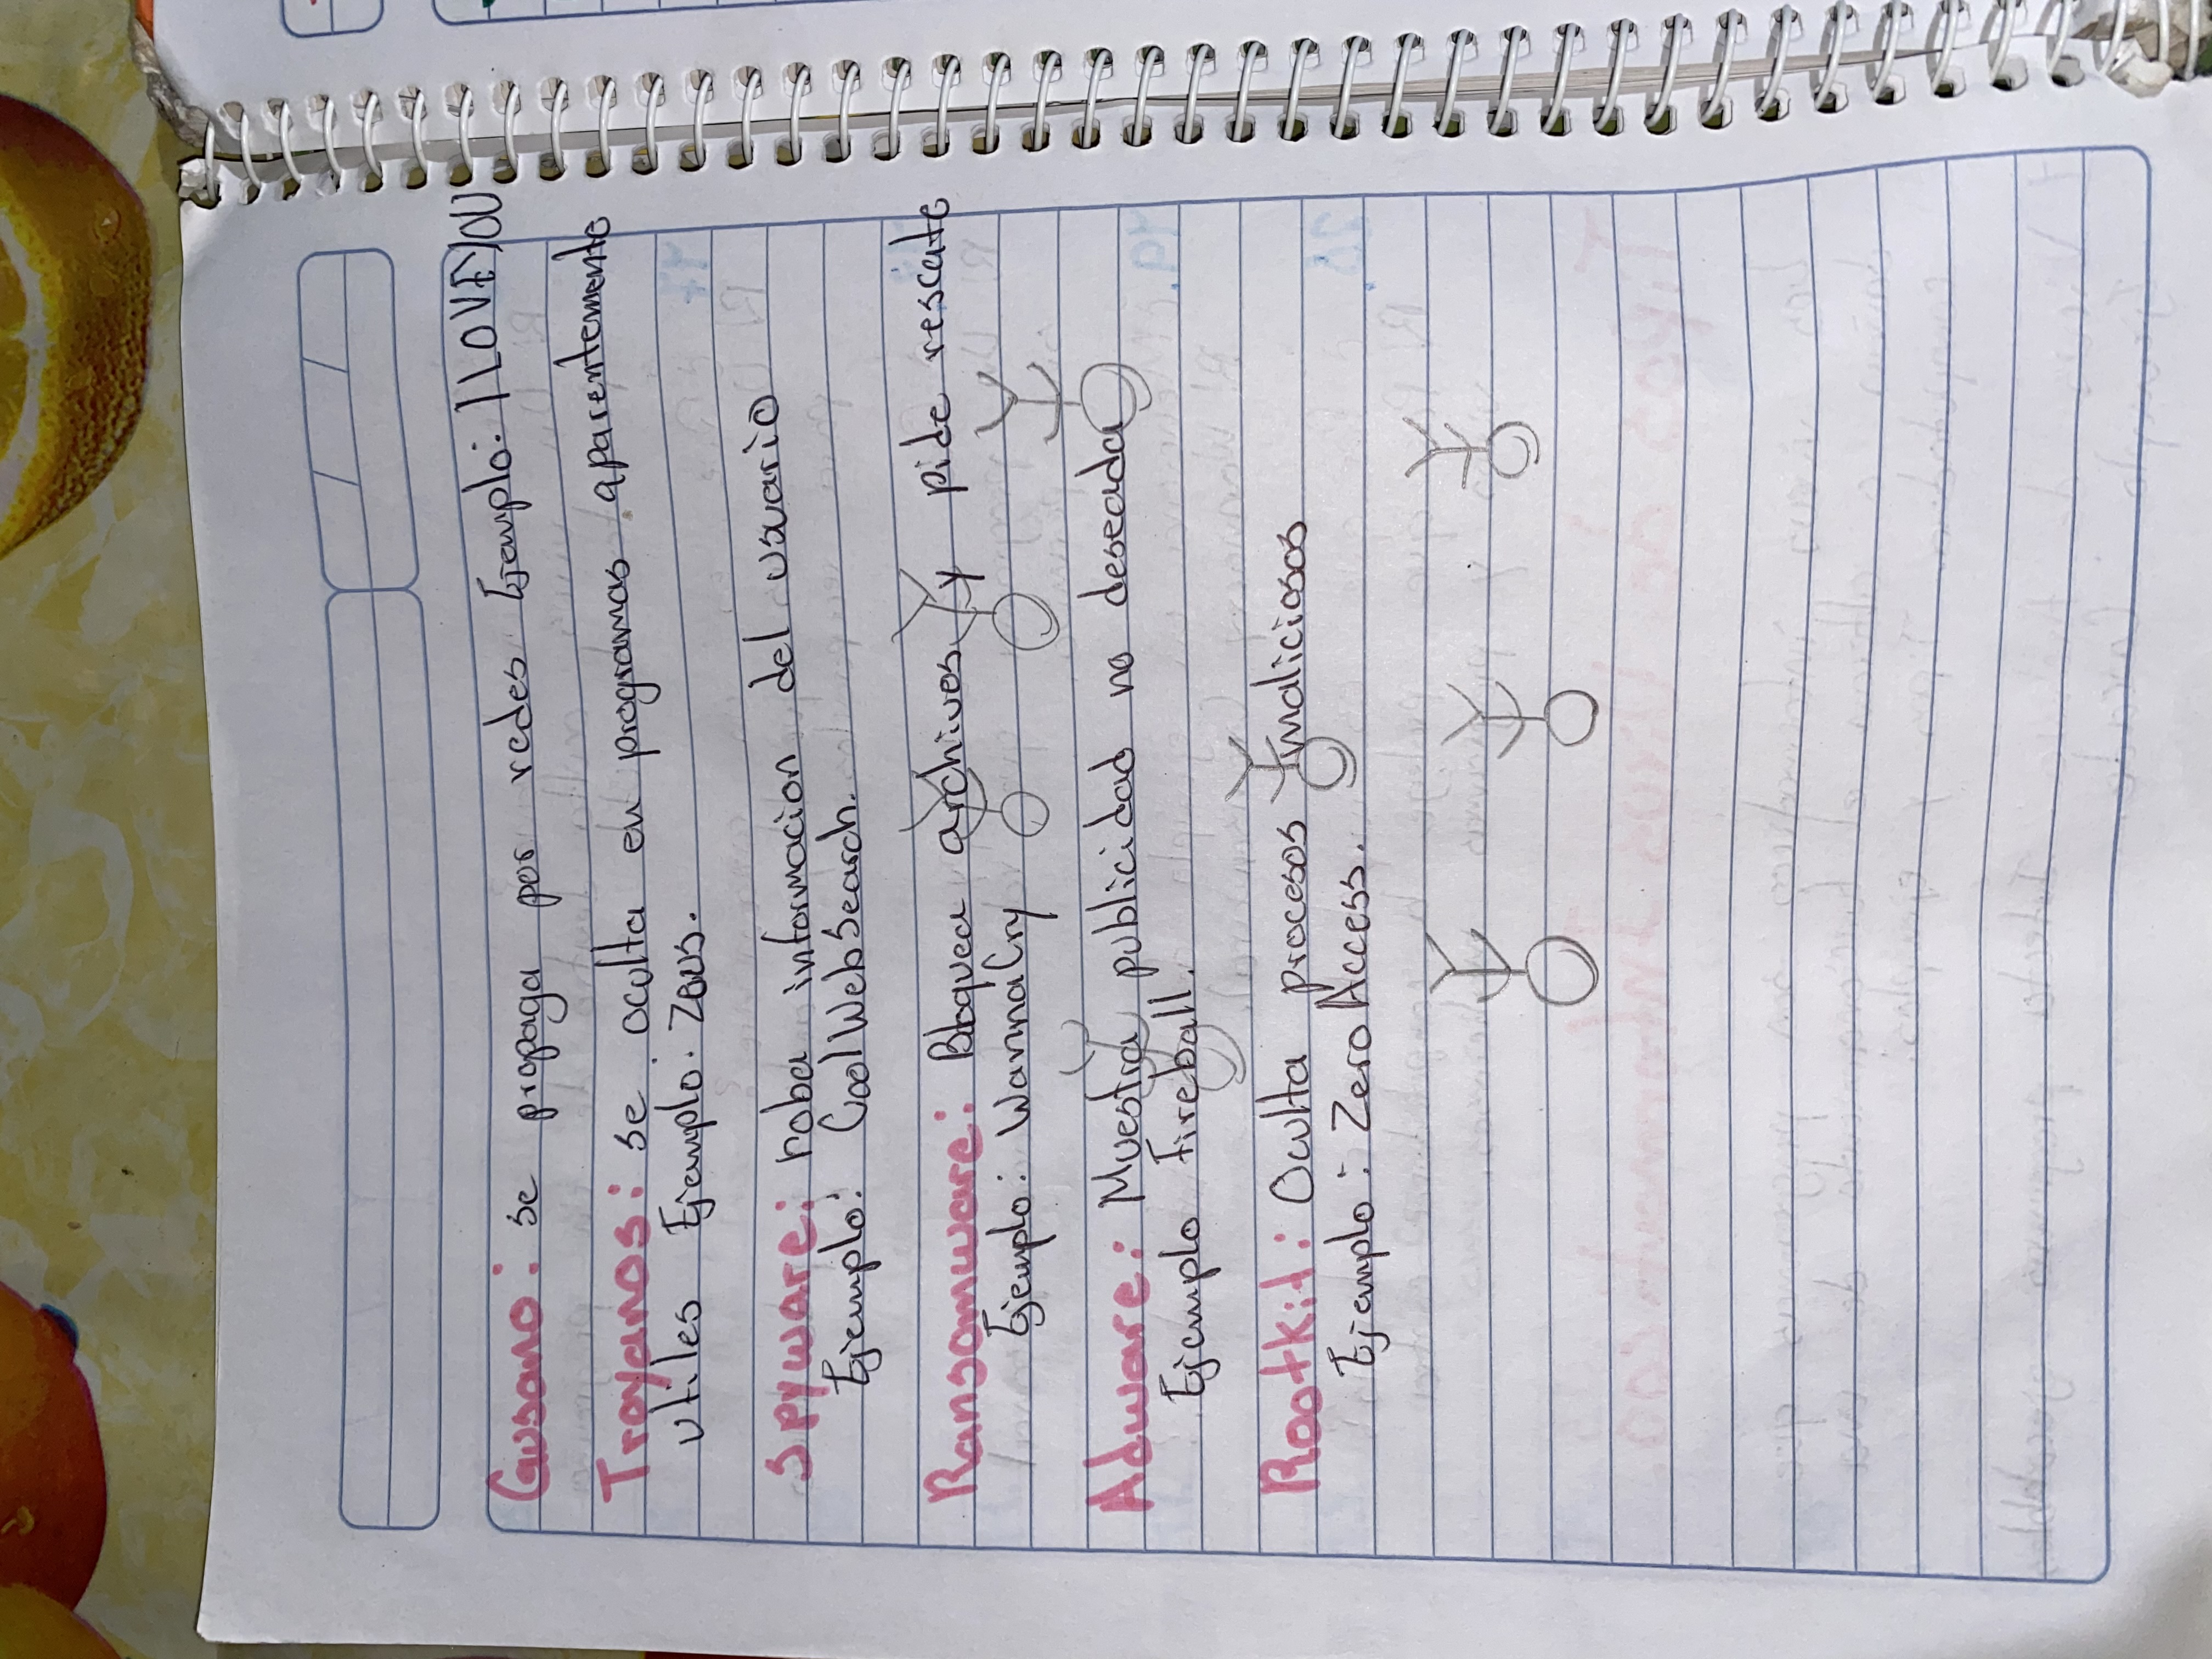 Gusano: se propaga por redes Ejemplo: ILOVEYOU
Troyanos: se oculta en programas aparentemente
utiles Ejemplo: Zeus.
Spyware: roba informacion del usuario
Ejemplo: CoolWebSearch.
Ransomware: Bloquea archivos y pide rescate
Ejemplo: WannaCry
Adware: Muestra publicidad no deseada
Ejemplo Fireball.
Rootkit: Oculta procesos maliciosos
Ejemplo: ZeroAccess.